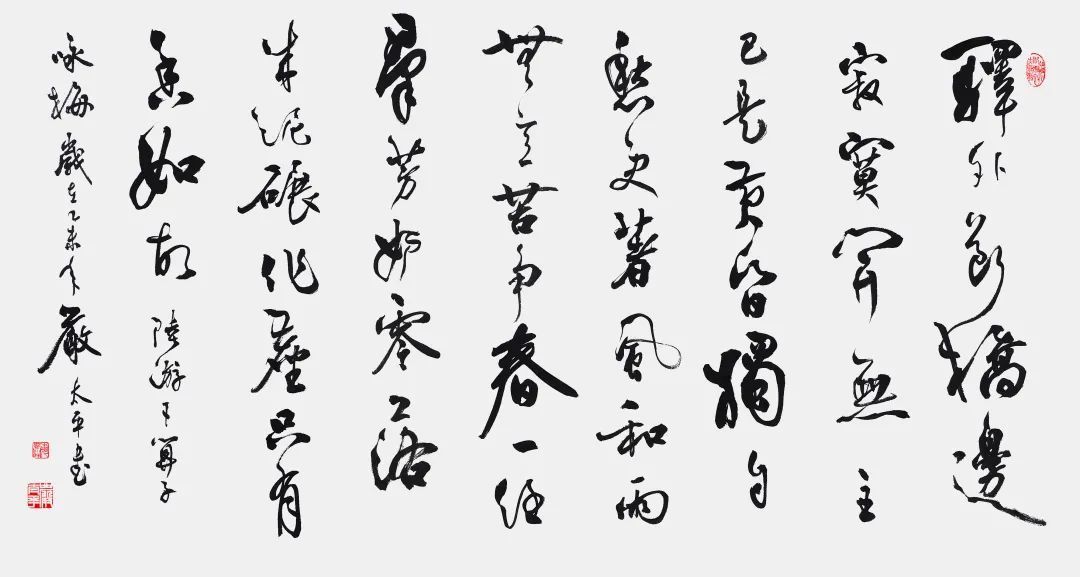 驛外斷橋邊
寂寞開無主
已是黃昏獨自
愁更著風和雨
無意苦爭春一任
羣芳妒零落
成泥碾作塵只有
香如故 陸游卜算子
咏梅 歲在乙未年 嚴太平書